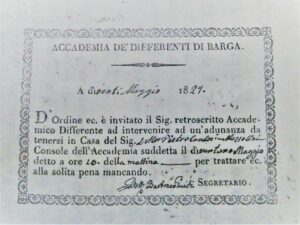 ACCADEMIA DE' DIFFERENTI DI BARGA.
A di venti Maggio 1821.
D'Ordine ec. è invitato il Sig. retroscritto Accade-
mico Differente ad intervenire ad un'adunanza da
tenersi in Casa del Sig. Dottor Pietro
Console dell'Accademia suddetta il dì ventuno Maggio
detto a ore 10. della mattina per trattare ec.
alla solita pena mancando.
SEGRETARIO.